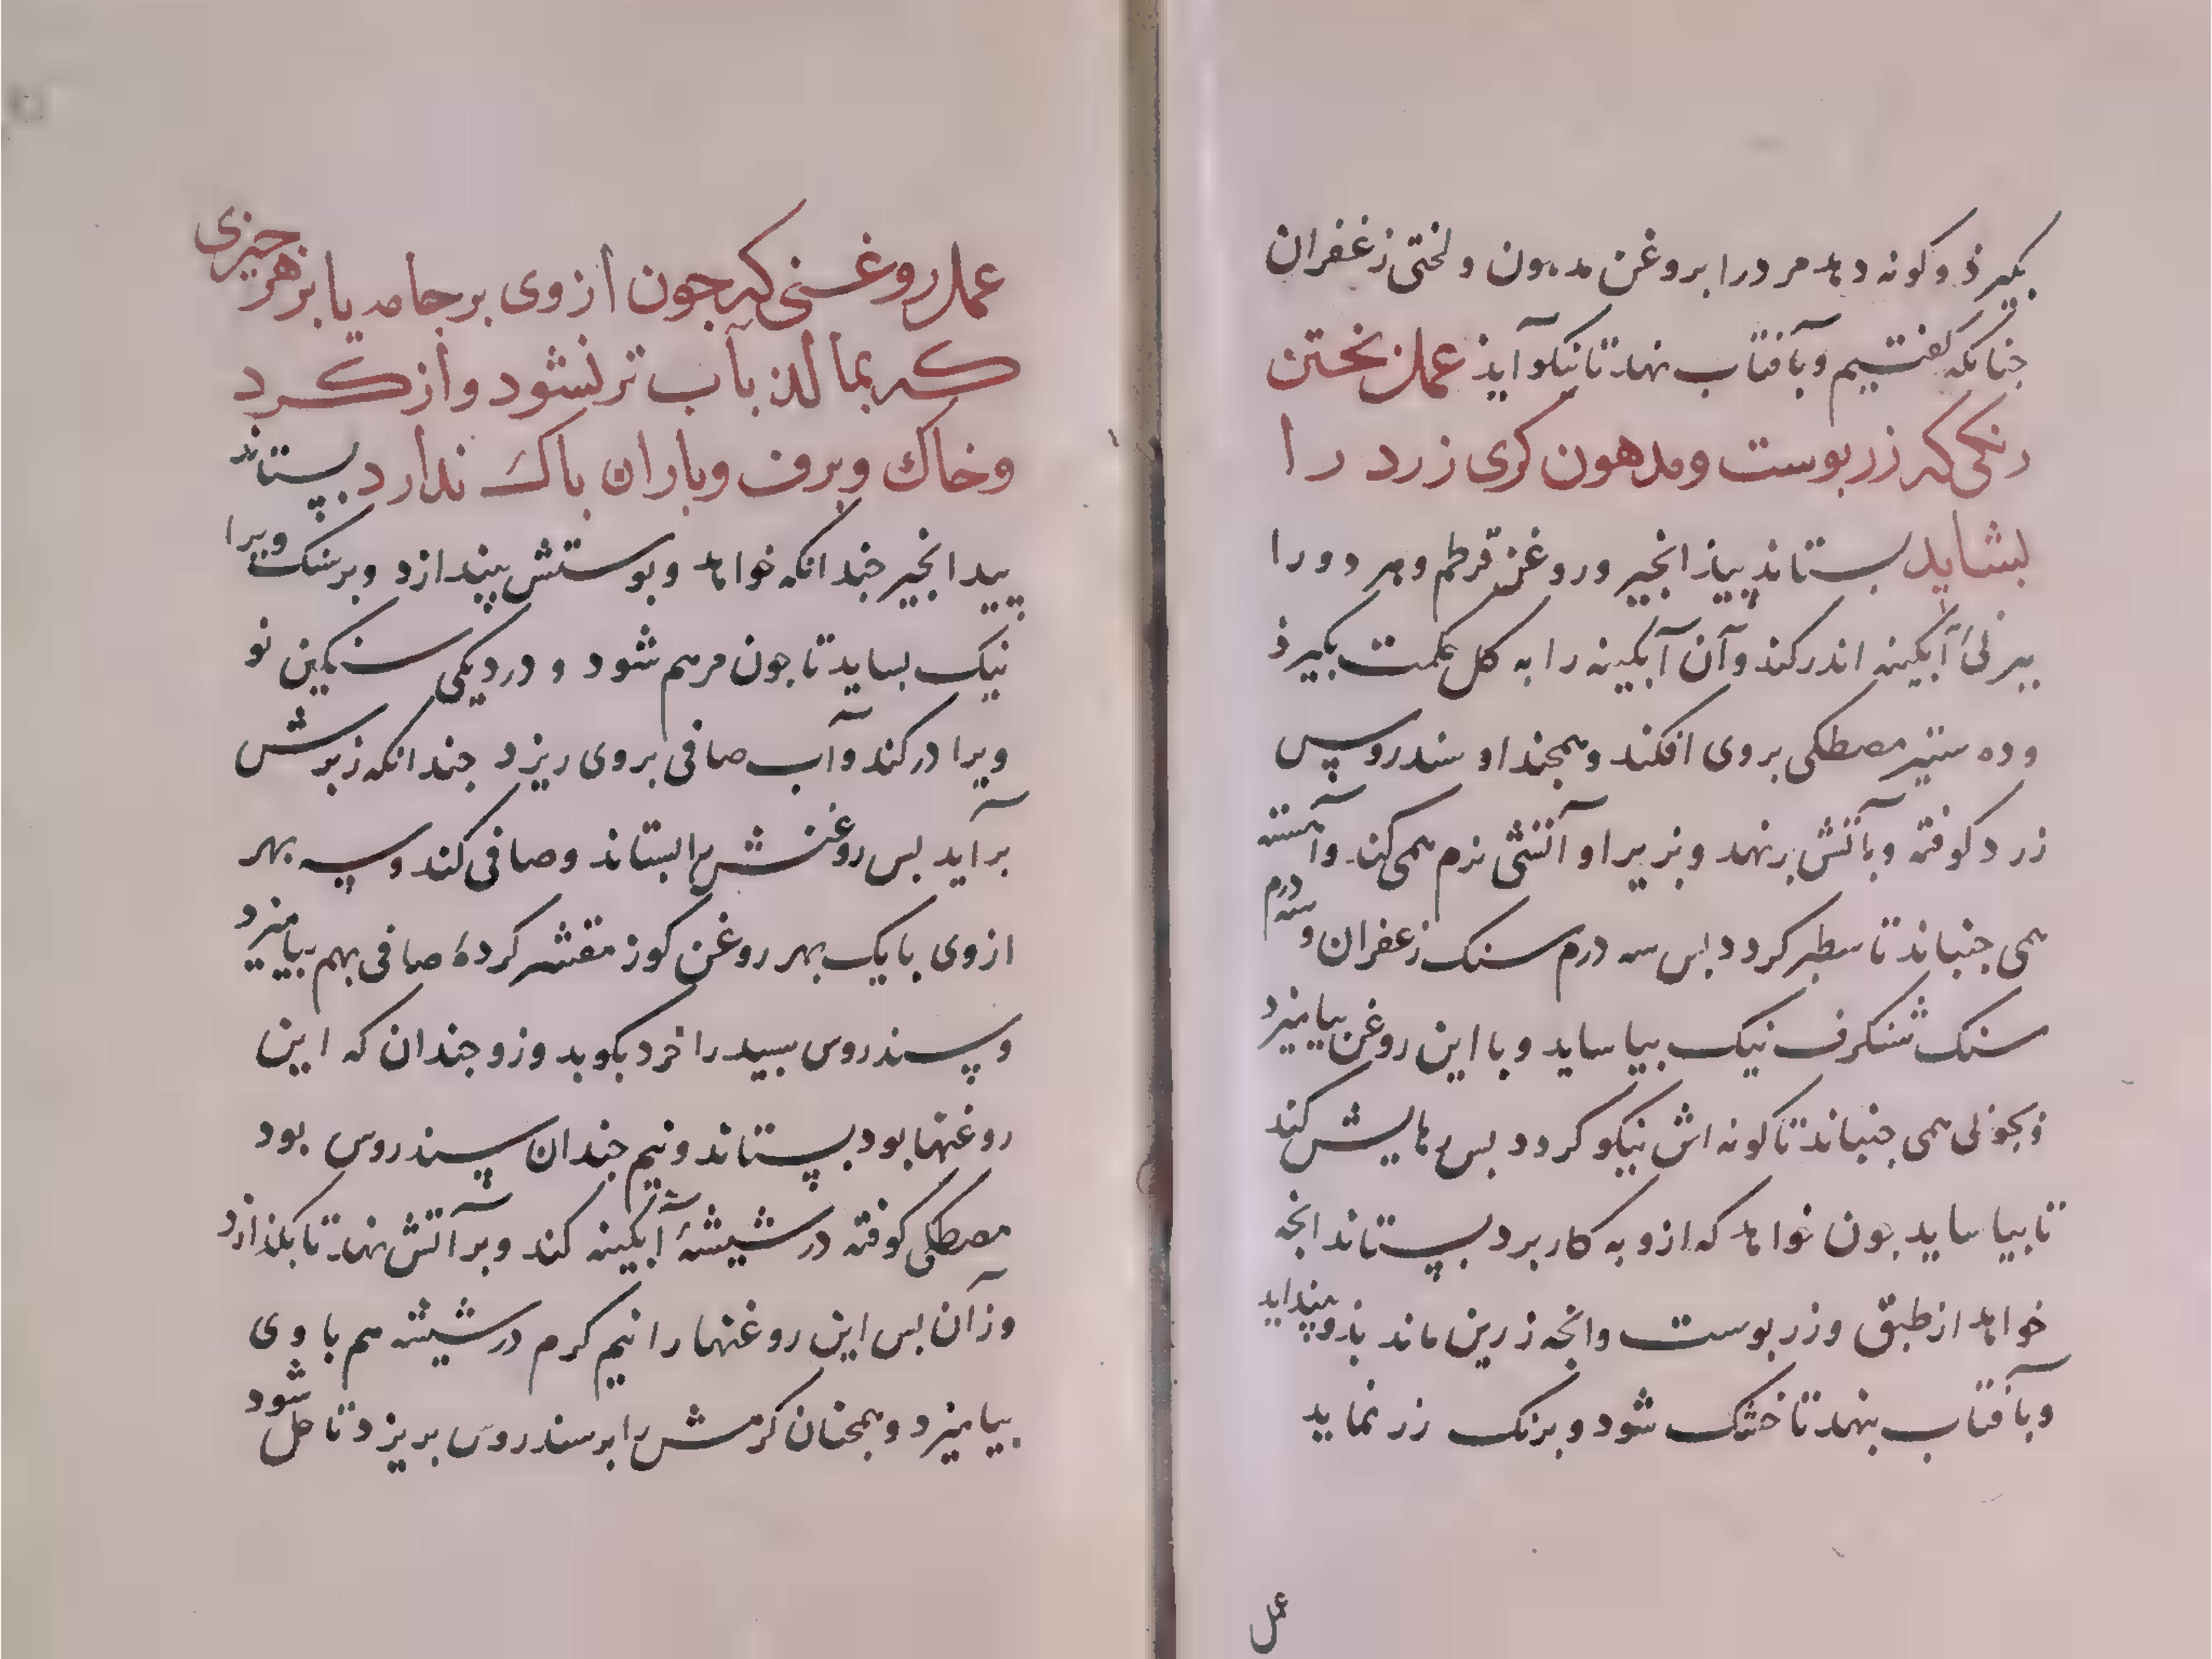 بگیرذ و کونه دهد مر درا بروغن مدهون و لختی زعفران
جنانکه کفتیم و بآفتاب نهد تا نیکو آیذ عمل بختن
رنکی که زر بوست و مدهون کری زرد را
بشاید بستاند بیذ انجیر و روغن قرطم و هر دو را
ببرنئ آبکینه اندر کند و آن آبکینه را به کل حکمت بکیرذ
و ده ستیر مصطکی بروی افکند و همجند او سندروس
زرد کوفته و بآتش برنهد و بزیر او آتشی نرم همی کند و آهسته
همی جنباند تا سطبر کردد بس سه درم سنک زعفران و سه درم
سنک شنکرف نیک بیاساید و با این روغن بیامیزد
و بجوئی همی جنباند تا کونه اش نیکو کردد بس رهایش کند
تا بیاساید جون خواهد که ازو به کار برد بستاند انجه
خواهد از طبق و زر بوست و انجه زرین ماند بذو بینداید
و بآفتاب بنهد تا خشک شود و برنک زر نماید
عمل
عمل روغنی که جون از وی بر جامه یا بر هر جیزی
که بمالذ بآب تر نشود و از کرد
و خاک و برف و باران باک ندارد بستاند
بید انجیر جندانکه خواهد و بوستش بیندازد و بر سنک ویرا
نیک بساید تا جون مرهم شود و در دیکی سنکین نو
ویرا در کند و آب صافی بروی ریزد جندانکه زبرش
برآید بس روغنش را بستاند و صافی کند و سه بهر
از وی با یک بهر روغن کوز مقشر کردهٔ صافی بهم بیامیزد
و سندروس سبید را خرد بکوبد وزو جندان که این
روغنها بود بستاند و نیم جندان سندروس بود
مصطکی کوفته در شیشهٔ آبکینه کند و بر آتش نهد تا بکذازد
وزآن بس این روغنها را نیم کرم در شیشه هم با وی
بیامیزد و همجنان کرمش را بر سندروس بریزد تا حل شود